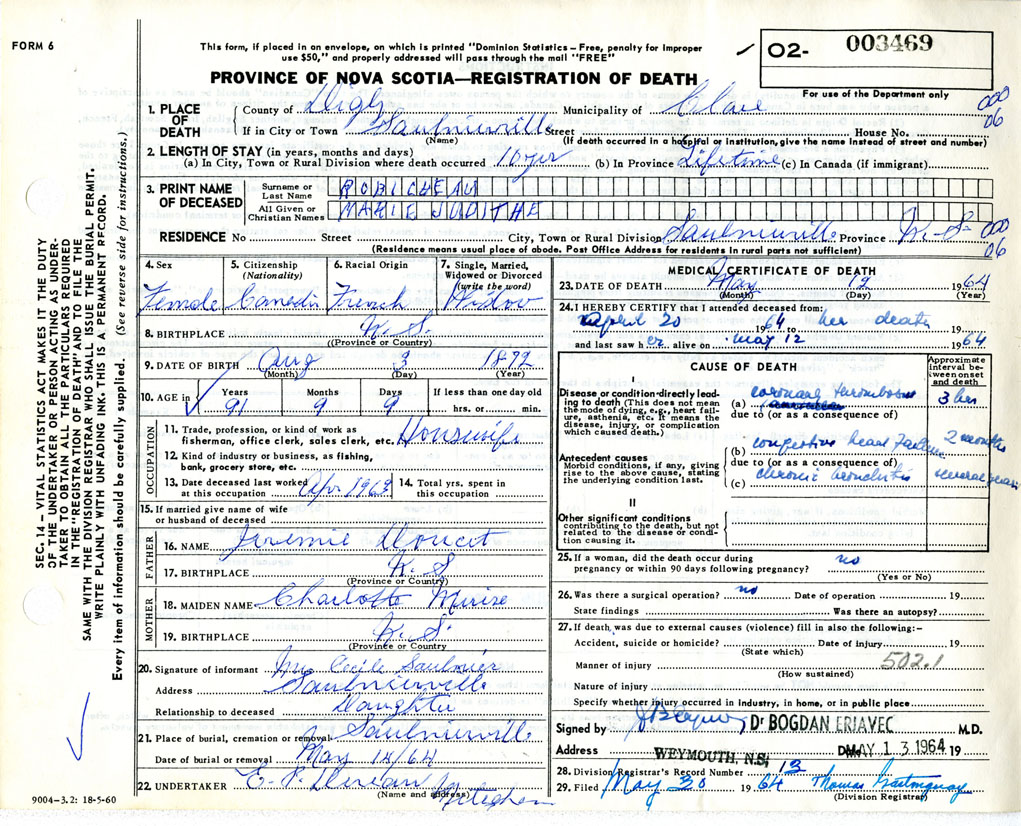 FORM 6
This form, if placed in an envelope, on which is printed "Dominion Statistics – Free, penalty for improper
use $50," and properly addressed will pass through the mail "FREE"
O2- 003469
For use of the Department only
PROVINCE OF NOVA SCOTIA—REGISTRATION OF DEATH
000
06
1. PLACE OF DEATH
County of Digby Municipality of Clare
If in City or Town Saulnierville Street House No.
(Name) (If death occurred in a hospital or institution, give the name instead of street and number)
2. LENGTH OF STAY (in years, months and days)
(a) In City, Town or Rural Division where death occurred 10 yrs (b) In Province Lifetime (c) In Canada (if immigrant)
3. PRINT NAME OF DECEASED
Surname or Last Name ROBICHEAU
All Given or Christian Names MARIE JUDITHE
RESIDENCE No Street City, Town or Rural Division Saulnierville Province N.S. 000
06
(Residence means usual place of above. Post Office Address for residents in rural parts not sufficient)
4. Sex 5. Citizenship (Nationality) 6. Racial Origin 7. Single, Married, Widowed or Divorced (write the word)
Female Canadin French Widow
8. BIRTHPLACE N.S.
(Province or Country)
9. DATE OF BIRTH Aug 3 1872
(Month) (Day) (Year)
10. AGE in Years Months Days If less than one day old
91 9 9 hrs. or min.
OCCUPATION
11. Trade, profession, or kind of work as
fisherman, office clerk, sales clerk, etc. Housewife
12. Kind of industry or business, as fishing,
bank, grocery store, etc.
13. Date deceased last worked at this occupation Apr 1963 14. Total yrs. spent in this occupation
15. If married give name of wife
or husband of deceased
FATHER
16. NAME Jeremie Doucet
17. BIRTHPLACE N.S.
(Province or Country)
MOTHER
18. MAIDEN NAME Charlotte
19. BIRTHPLACE N.S.
(Province or Country
20. Signature of informant Mrs Cecile Saulnier
Address Saulnierville
Relationship to deceased Daughter
21. Place of burial, cremation or removal Saulnierville
Date of burial or removal May 14/64
22. UNDERTAKER Meteghan
(Name and address)
9004–3.2: 18-5-60
MEDICAL CERTIFICATE OF DEATH
23. DATE OF DEATH May 12 1964
(Month) (Day) (Year)
24. I HEREBY CERTIFY that I attended deceased from:
April 20 1964 to her death 19
and last saw her alive on May 12 1964
CAUSE OF DEATH
Approximate interval between onset and death
I
Disease or condition directly leading to death (This does not mean the mode of dying, e.g., heart failure, asthenia, etc. It means the disease, injury, or complication which caused death.)
(a) coronary thrombosis 3 hrs
due to (or as a consequence of)
(b) congestive heart failure 2 months
Antecedent causes
Morbid conditions, if any, giving rise to the above cause, stating the underlying condition last.
due to (or as a consequence of)
(c) chronic bronchitis several years
II
Other significant conditions
contributing to the death, but not related to the disease or condition causing it.
25. If a woman, did the death occur during
pregnancy or within 90 days following pregnancy? no
(Yes or No)
26. Was there a surgical operation? no Date of operation 19
State findings Was there an autopsy?
27. If death was due to external causes (violence) fill in also the following:–
Accident, suicide or homicide? Date of injury 19
(State which)
Manner of injury 502.1
(How sustained)
Nature of injury
Specify whether injury occurred in industry, in home, or in public place
Signed by Dr BOGDAN ERJAVEC M.D.
Address WEYMOUTH, N.S. MAY 13 1964 19
28. Division Registrar's Record Number 13
29. Filed May 30 1964 Thomas
(Division Registrar)
SEC. 14 – VITAL STATISTICS ACT MAKES IT THE DUTY
OF THE UNDERTAKER OR PERSON ACTING AS UNDER-
TAKER TO OBTAIN ALL THE PARTICULARS REQUIRED
IN THE "REGISTRATION OF DEATH" AND TO FILE THE
SAME WITH THE DIVISION REGISTRAR WHO SHALL ISSUE THE BURIAL PERMIT.
WRITE PLAINLY WITH UNFADING INK. THIS IS A PERMANENT RECORD.
Every item of information should be carefully supplied. (See reverse side for instructions.)